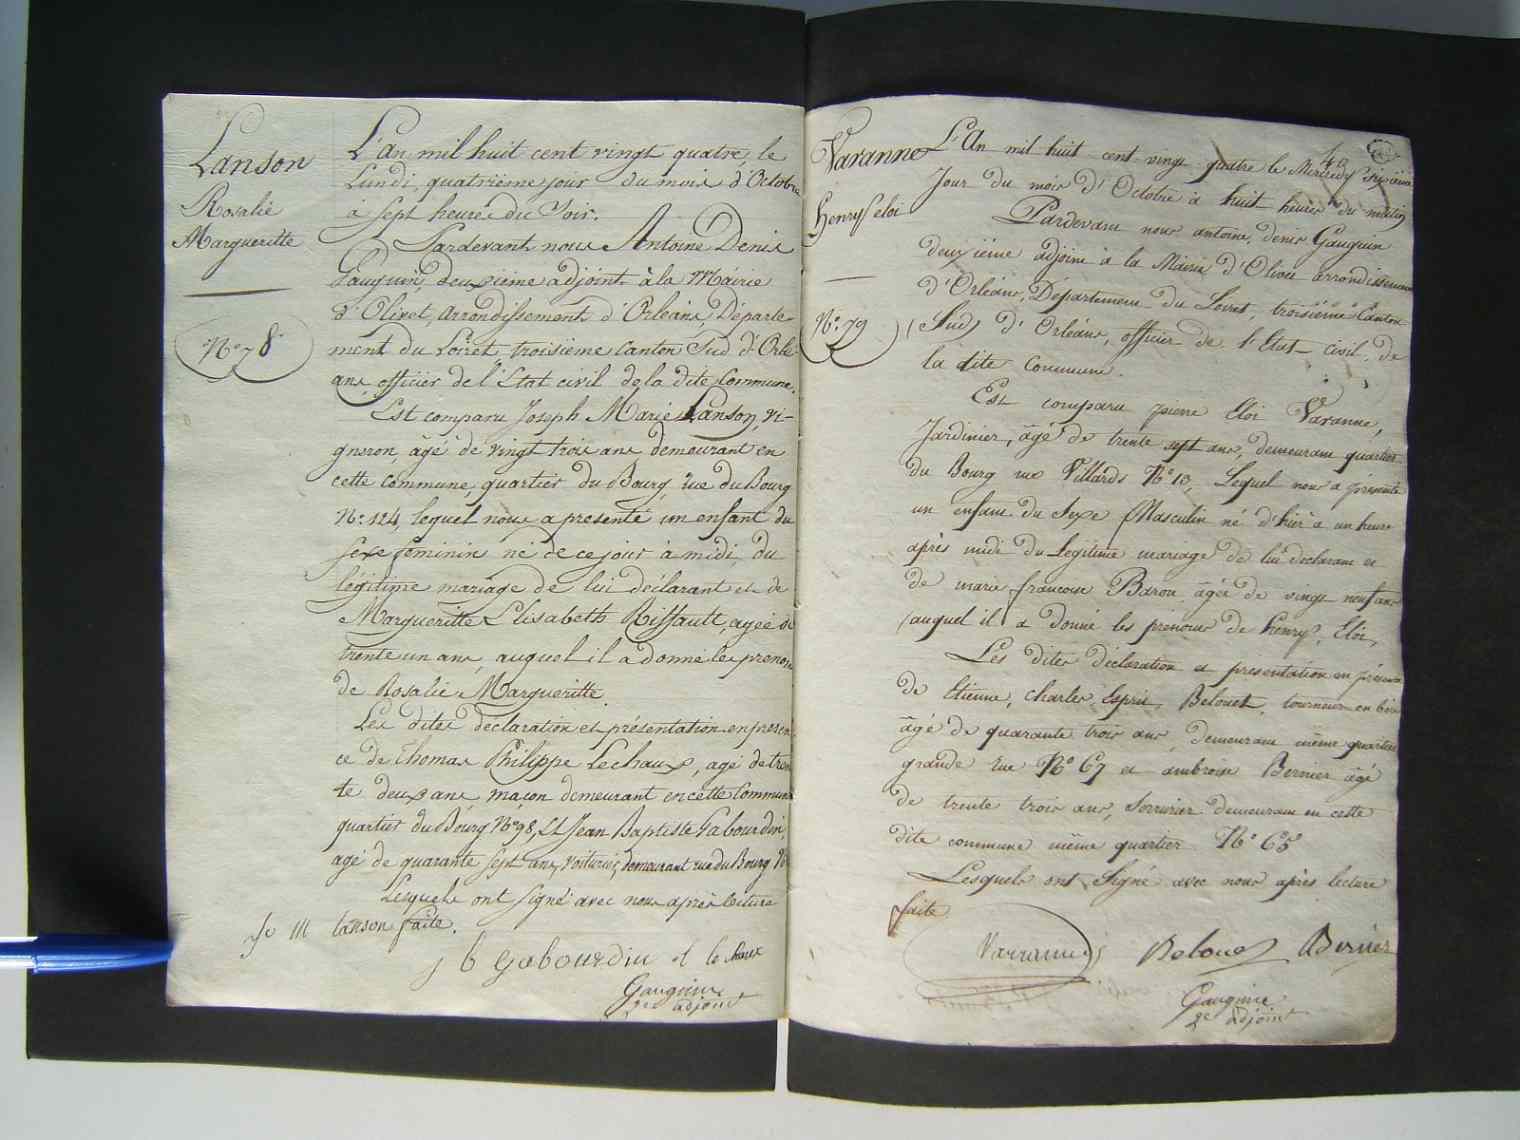 Lanson
Rosalie
Margueritte
N° 78
L'An mil huit cent vingt quatre, le
Lundi, quatrieme jour du mois d'Octobre
à sept heures du Soir.
Pardevant nous Antoine Denis
Gauguin, deuxième adjoint à la Mairie
d'Olivet, arrondissement d'Orléans, Départe-
ment du Loiret, troisième Canton Sud d'Orlé-
ans, officier de l'Etat civil de la dite Commune.
Est comparu Joseph Marie Lanson, vi-
gneron, âgé de vingt trois ans demeurant en
cette commune, quartier du Bourg, rue du Bourg
N° 124, lequel nous a presenté un enfant du
sexe feminin né de ce jour à midi, du
légitime mariage de lui déclarant et de
Margueritte Elisabeth Riffault, agée de
trente un ans, auquel il a donné les prenoms
de Rosalie Margueritte.
Les dites declaration et présentation en presen
ce de thomas Philippe Lechaux, agé de tren
te deux ans maçon demeurant en cette Commune
quartier du Bourg N° 98, Et Jean Baptiste Gabourdin,
agé de quarante sept ans, voiturier, demeurant rue du Bourg N°
Lesquels ont signé avec nous après lecture
faite.
Je m lanson
j b gabourdin t le chaux
Gauguin
2e adjoint
Varanne
Henry eloi
N° 79
L'An mil huit cent vingt quatre le Mercredy sixième
Jour du mois d'Octobre a huit heures du matin
Pardevant nous antoine, denis Gauguin
deuxième adjoint à la Mairie d'Olivet arrondissement
d'Orléans, Département du Loiret, troisième Canton
(Sud) d'Orléans, officier de l'Etat civil de
la dite commune.
Est comparu pierre Eloi Varanne,
Jardinier, âgé de trente sept ans, demeurant quartier
du Bourg rue Villards N° 13, Lequel nous a présenté
un enfant du Sexe Masculin né d'hier à un heure
après midi du Legitime mariage de lui declarant et
de marie francoise Baron âgée de vingt neuf ans
auquel il a donné les prenoms de henry, Eloi,
Les dites déclaration et presentation en présence
de Etienne, charles, Esprit, Belouet, tourneur en bois
âgé de quarante trois ans demeurant même quartier
grande rue N° 67 et ambroise Bernier âgé
de trente trois ans, Serrurier demeurant en cette
dite commune même quartier N° 65
Lesquels ont Signé avec nous après lecture
faite
Varranne Belouet ABernier
Gauguin
2e adjoint